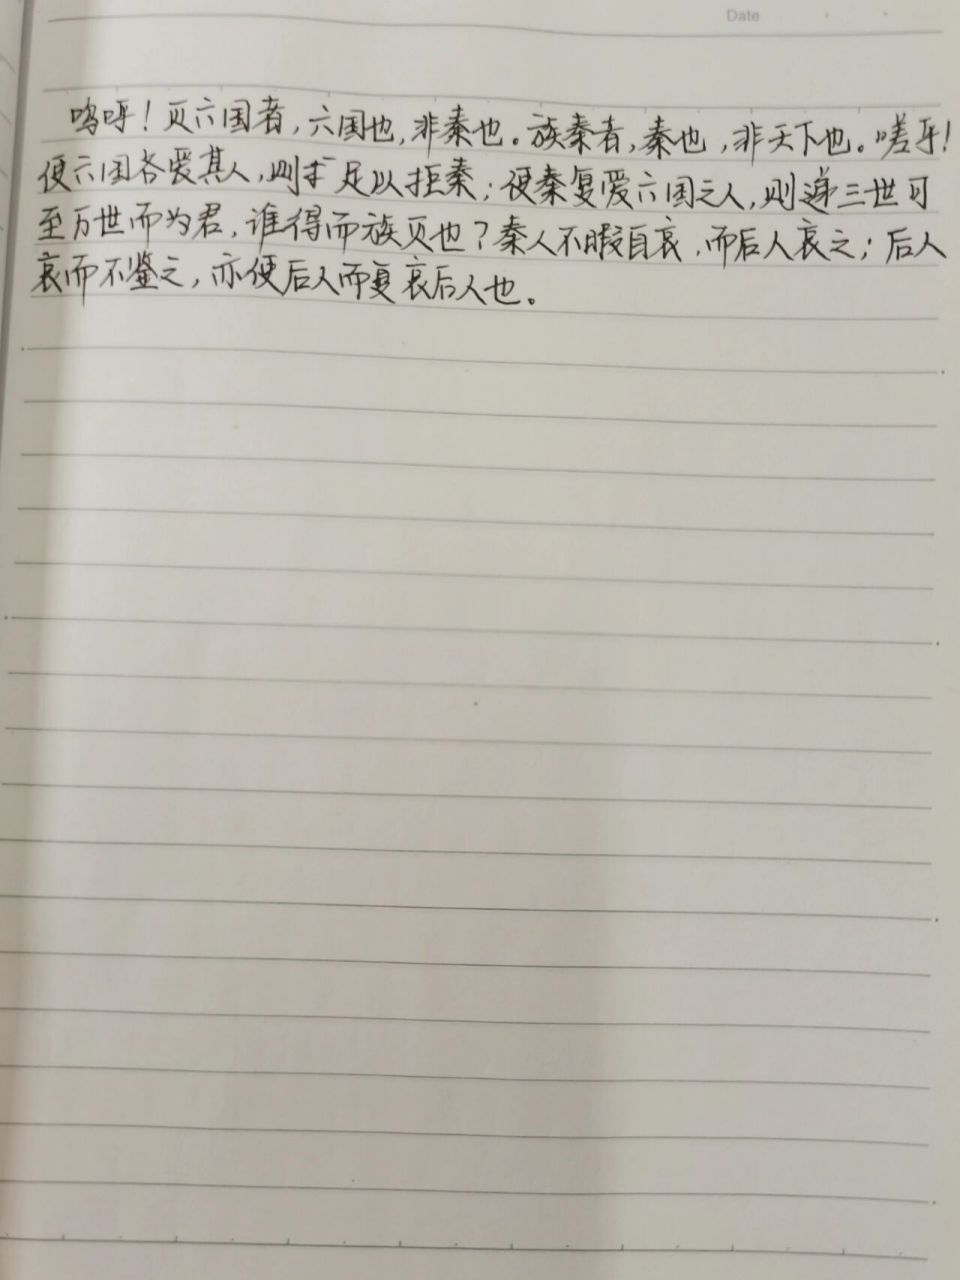 Date
呜呼！灭六国者，六国也，非秦也。族秦者，秦也，非天下也。嗟乎！
使六国各爱其人，则足以拒秦；使秦复爱六国之人，则递三世可
至万世而为君，谁得而族灭也？秦人不暇自哀，而后人哀之；后人
哀而不鉴之，亦使后人而复哀后人也。